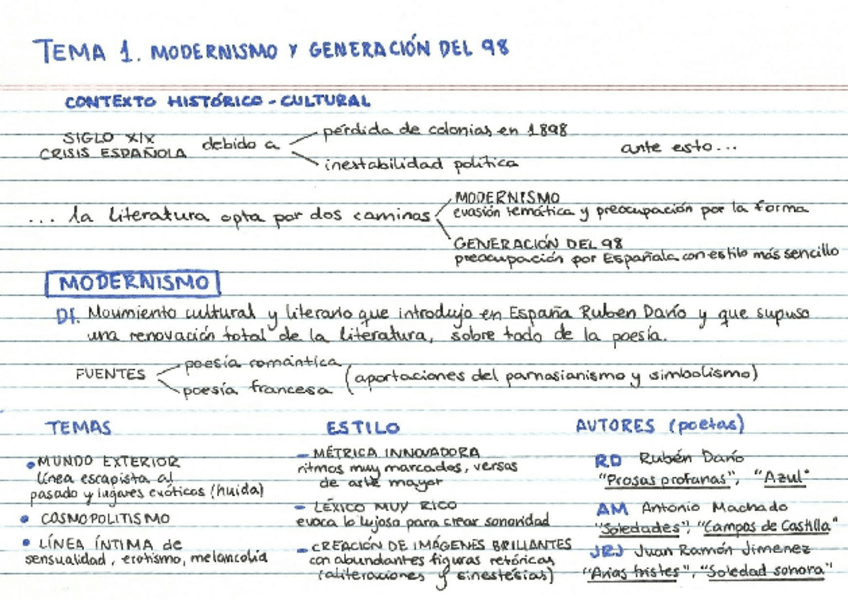 TEMA 1. MODERNISMO Y GENERACIÓN DEL 98
CONTEXTO HISTÓRICO - CULTURAL
SIGLO XIX
CRISIS ESPAÑOLA debido a
pérdida de colonias en 1898
inestabilidad política
ante esto...
... la literatura opta por dos caminos
MODERNISMO
evasión temática y preocupación por la forma
GENERACIÓN DEL 98
preocupación por Españala con estilo más sencillo
MODERNISMO
Df. Movimiento cultural y literario que introdujo en España Rubén Darío y que supuso
una renovación total de la literatura, sobre todo de la poesía.
FUENTES
poesía romántica
poesía francesa
(aportaciones del parnasianismo y simbolismo)
TEMAS
• MUNDO EXTERIOR
línea escapista al
pasado y lugares exóticos (huida)
• COSMOPOLITISMO
• LÍNEA ÍNTIMA de
sensualidad, erotismo, melancolía
ESTILO
- MÉTRICA INNOVADORA
ritmos muy marcados, versos
de arte mayor
- LÉXICO MUY RICO
evoca lo lujoso para crear sonoridad
- CREACIÓN DE IMÁGENES BRILLANTES
con abundantes figuras retóricas
(aliteraciones y sinestesias)
AUTORES (poetas)
RD Rubén Darío
"Prosas profanas", "Azul"
AM Antonio Machado
"Soledades", "Campos de Castilla"
JRJ Juan Ramón Jimenez
"Arias tristes", "Soledad sonora"